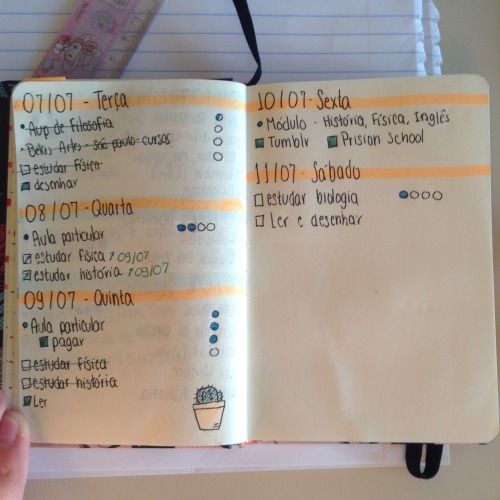 07/07 - Terça
Avp de Filosofia
Belas Artes - são paulo - cursos
estudar física
desenhar
08/07 - Quarta
Aula particular
estudar física 09/07
estudar história 09/07
09/07 - Quinta
Aula particular
pagar
estudar física
estudar história
Ler
10/07 - Sexta
Módulo - História, Física, Inglês
Tumblr Prision School
11/07 - Sábado
estudar biologia
Ler e desenhar